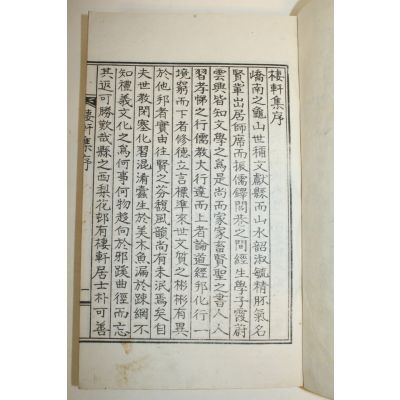 棲軒集序
嶠南之龜山世稱文獻縣而山水韶淑毓精胚氣名
賢輩出居師席而振儒鐸閭巷之間經生學子霞蔚
雲興皆知文學之爲是尚而家家畜賢聖之書人人
習孝悌之行儒敎大行達而上者論道經邦化行一
境窮而下者修德立言標準來世文質之彬彬有異
於他邦者實由往賢之芬馥風韻尚有未泯焉矣自
夫世敎閉塞化習混淆蠹生於美木魚漏於踈網不
知禮義文化之爲何事何物趨向於邪蹊曲徑而忘
其返可勝歎哉縣之西梨花邨有棲軒居士朴可善
棲軒集序
一